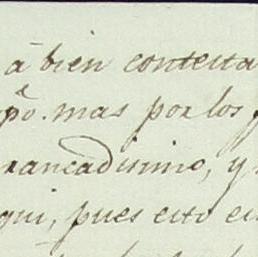 á bien contesta
pº. mas por los
rancadisimo, y
qui, pues esto es